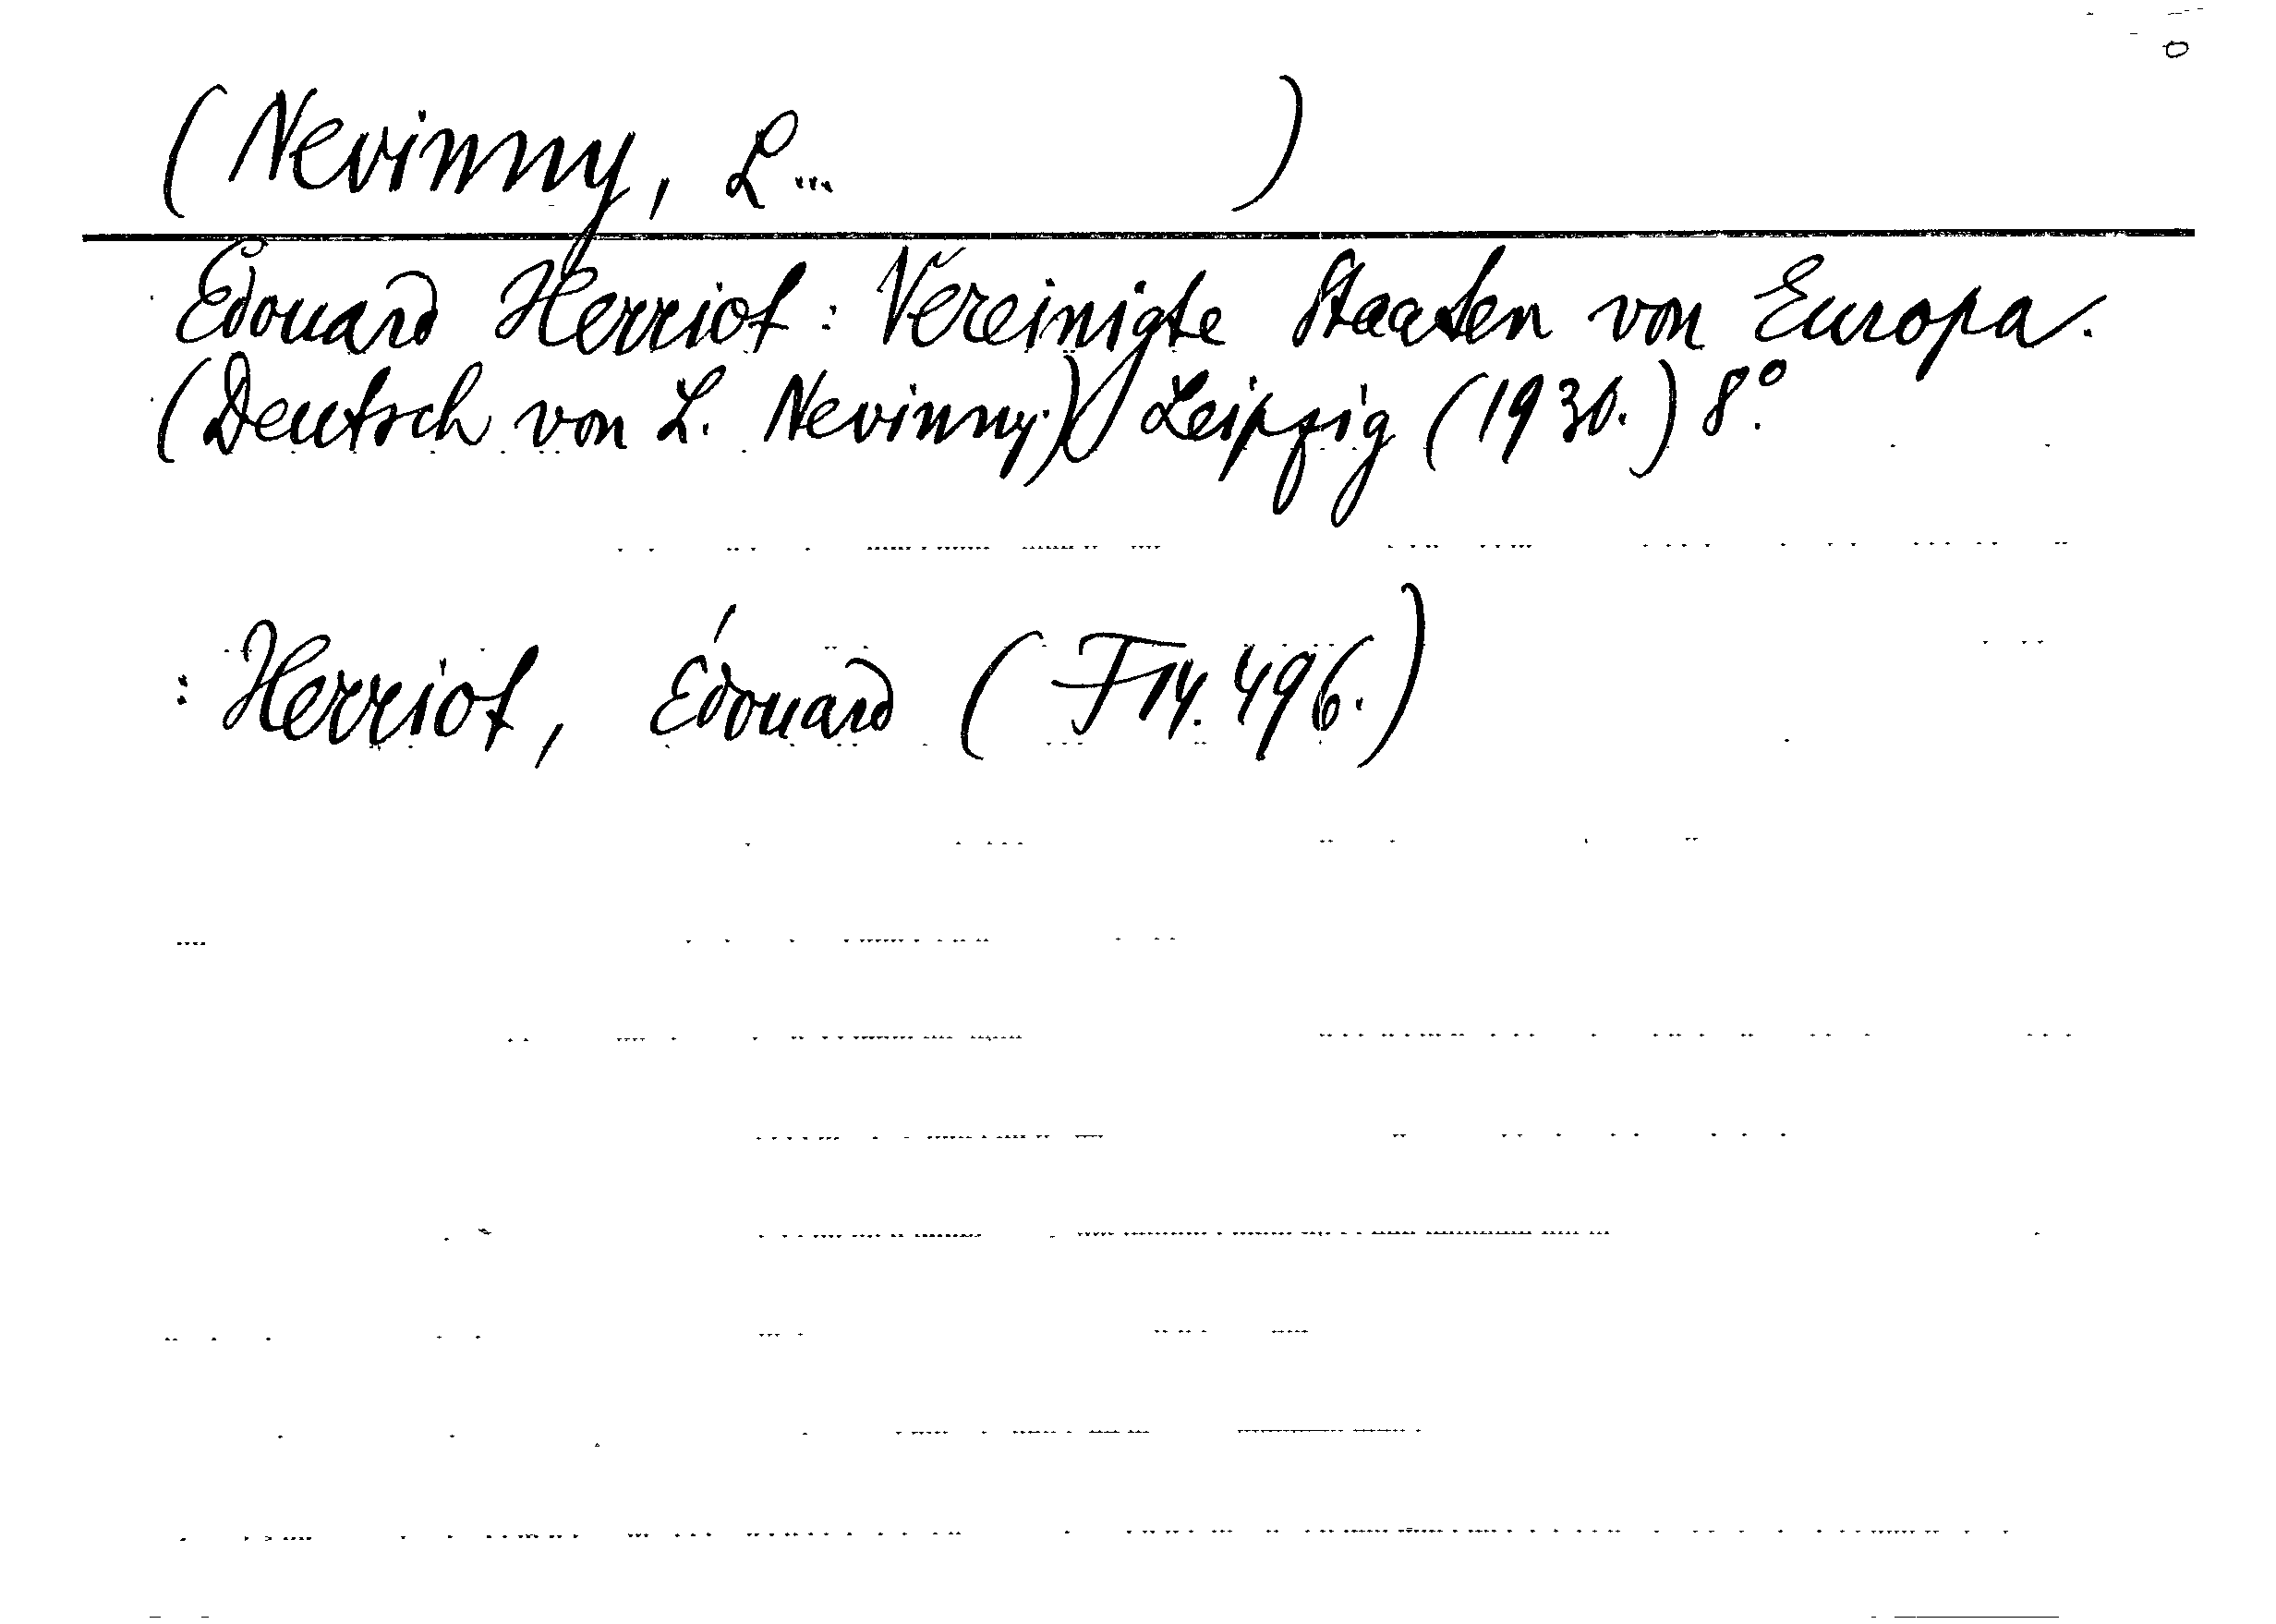 (Nevinny, L... )
Edouard Herriot: Vereinigte Staaten von Europa.
(Deutsch von L. Nevinny.) Leipzig (1930.) 8°.
: Herriot, Édouard (F14.496.)